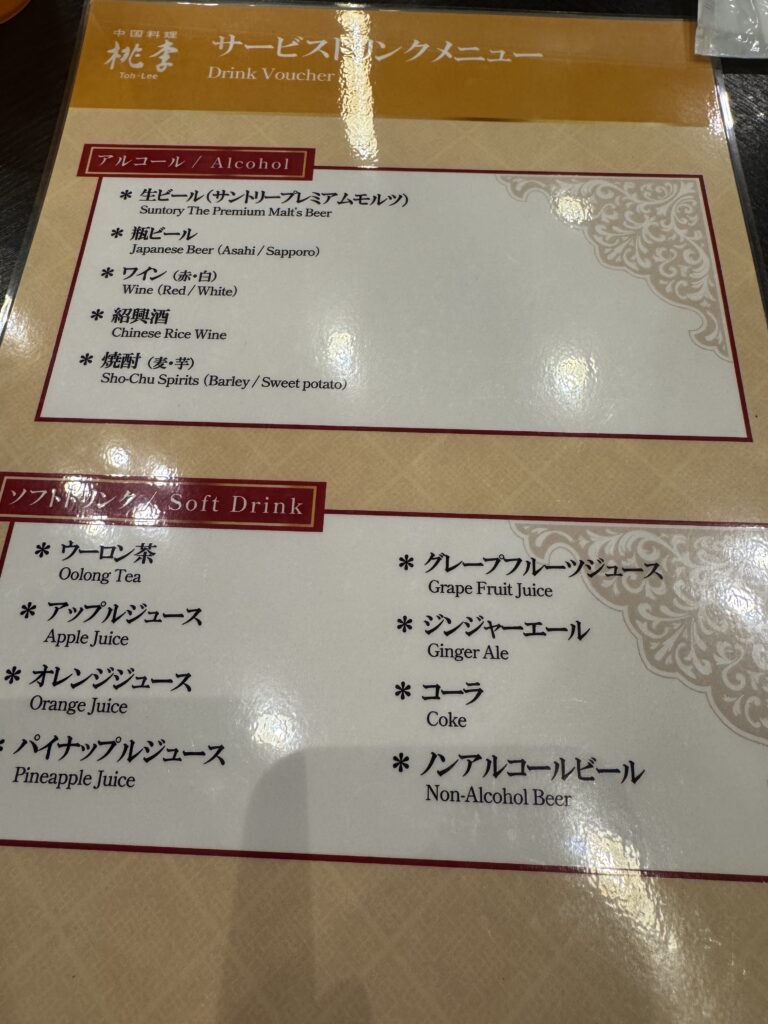 中国料理
桃李
Toh-Lee
サービスドリンクメニュー
Drink Voucher
アルコール / Alcohol
* 生ビール(サントリープレミアムモルツ)
Suntory The Premium Malt's Beer
* 瓶ビール
Japanese Beer (Asahi / Sapporo)
* ワイン (赤・白)
Wine (Red / White)
* 紹興酒
Chinese Rice Wine
* 焼酎 (麦・芋)
Sho-Chu Spirits (Barley / Sweet potato)
ソフトドリンク / Soft Drink
* ウーロン茶
Oolong Tea
* アップルジュース
Apple Juice
* オレンジジュース
Orange Juice
* パイナップルジュース
Pineapple Juice
* グレープフルーツジュース
Grape Fruit Juice
* ジンジャーエール
Ginger Ale
* コーラ
Coke
* ノンアルコールビール
Non-Alcohol Beer